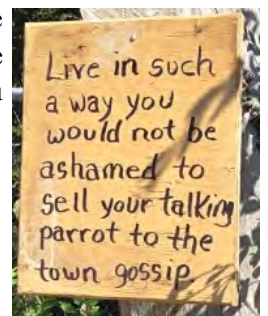 Live in such
a way you
would not be
ashamed to
sell your talking
parrot to the
town gossip.